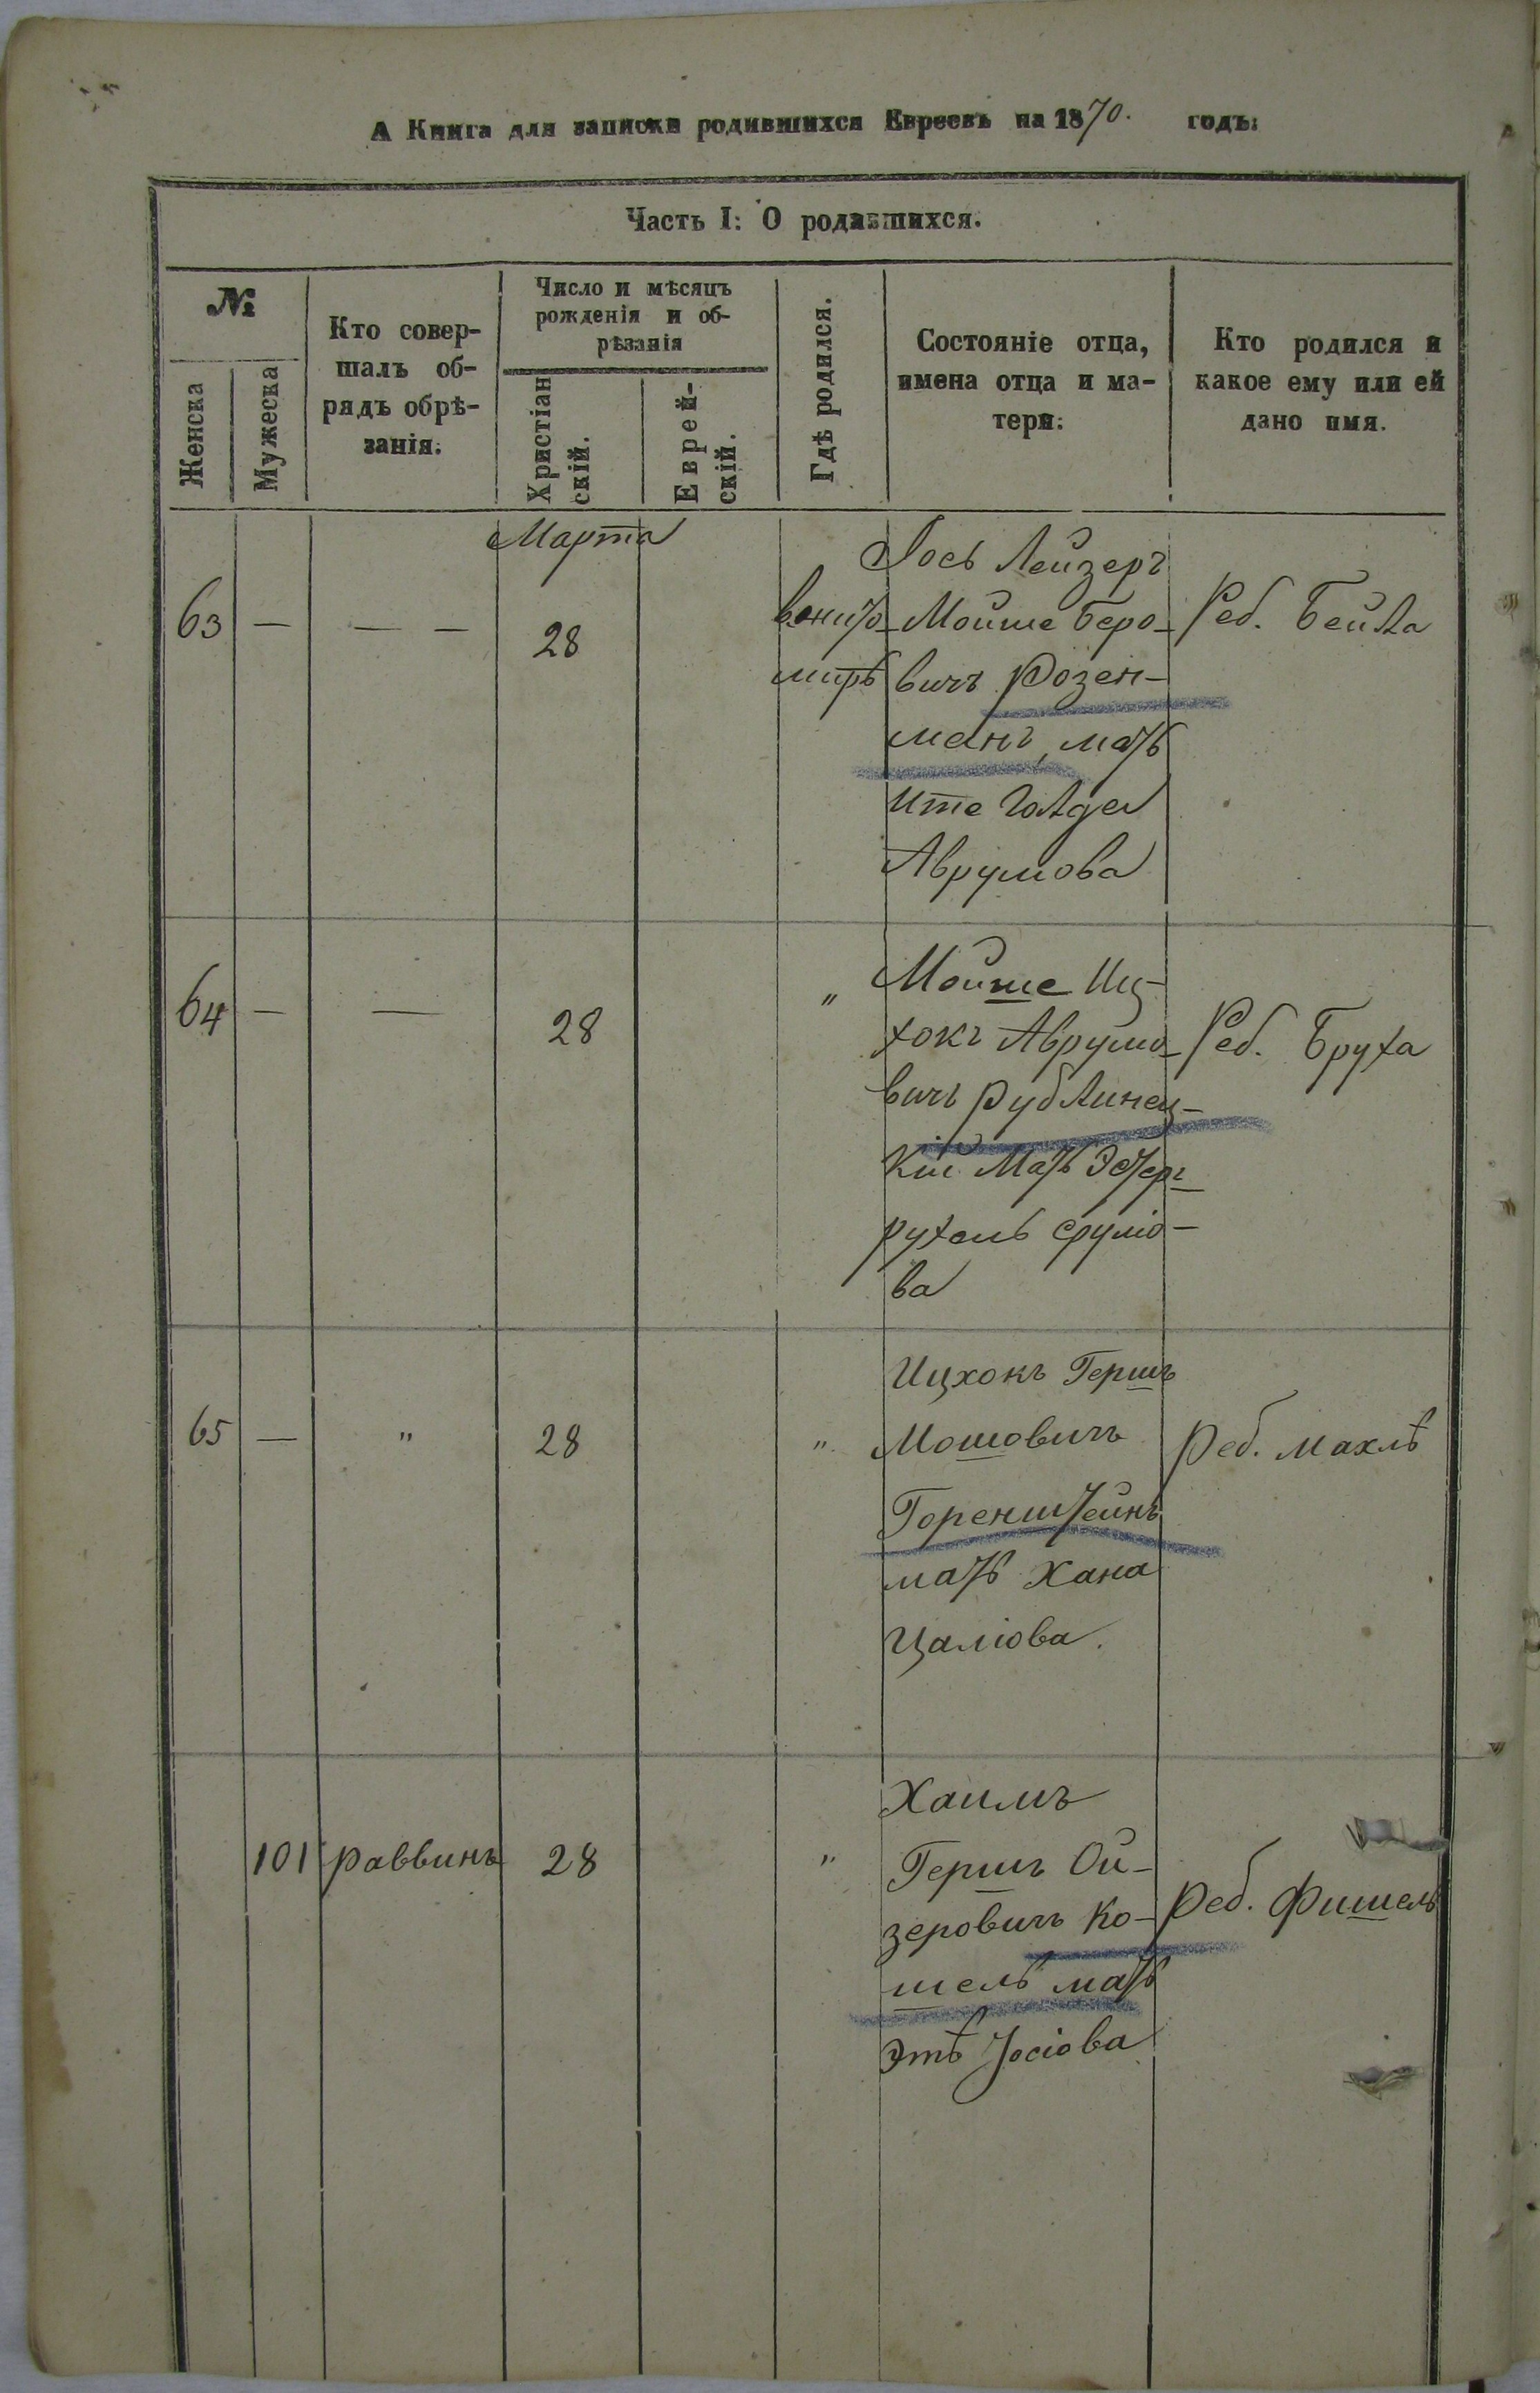 А Книга для записки родившихся Евреевъ на 1870. годъ:
Часть I: О родившихся.
№
Женска
Мужеска
Кто совер-
шалъ об-
рядъ обрѣ-
занія.
Число и мѣсяцъ
рожденія и об-
рѣзанія
Христіан
скій.
Еврей-
скій.
Гдѣ родился.
Состояніе отца,
имена отца и ма-
тери.
Кто родился и
какое ему или ей
дано имя.
Марта
63 — — — 28
Іось Лейзеръ
Мойше Беро-
вичъ Розен-
манъ, мать
Ите Голде
Аврумова
Реб. Бейла
64 — — 28 "
Мойше Иц-
хокъ Аврумо-
вичъ Рублинец-
кій Мать Эстеръ
Рухель Срумо-
ва
Реб. Бруха
65 — " 28 "
Ицхокъ Гершъ
Мошовичъ
Горенштейнъ
мать Хана
Цаліова.
Реб. Махлѣ
101 раввинъ 28 "
Хаимъ
Гершъ Ой-
зеровичъ Ко-
шель мать
Этѣ Іосіова
Реб. Фишель